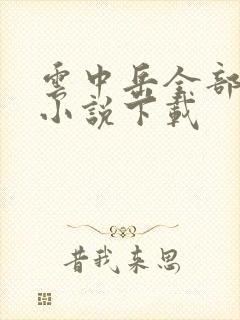 雲中岳全部
小說下載
昔我来思